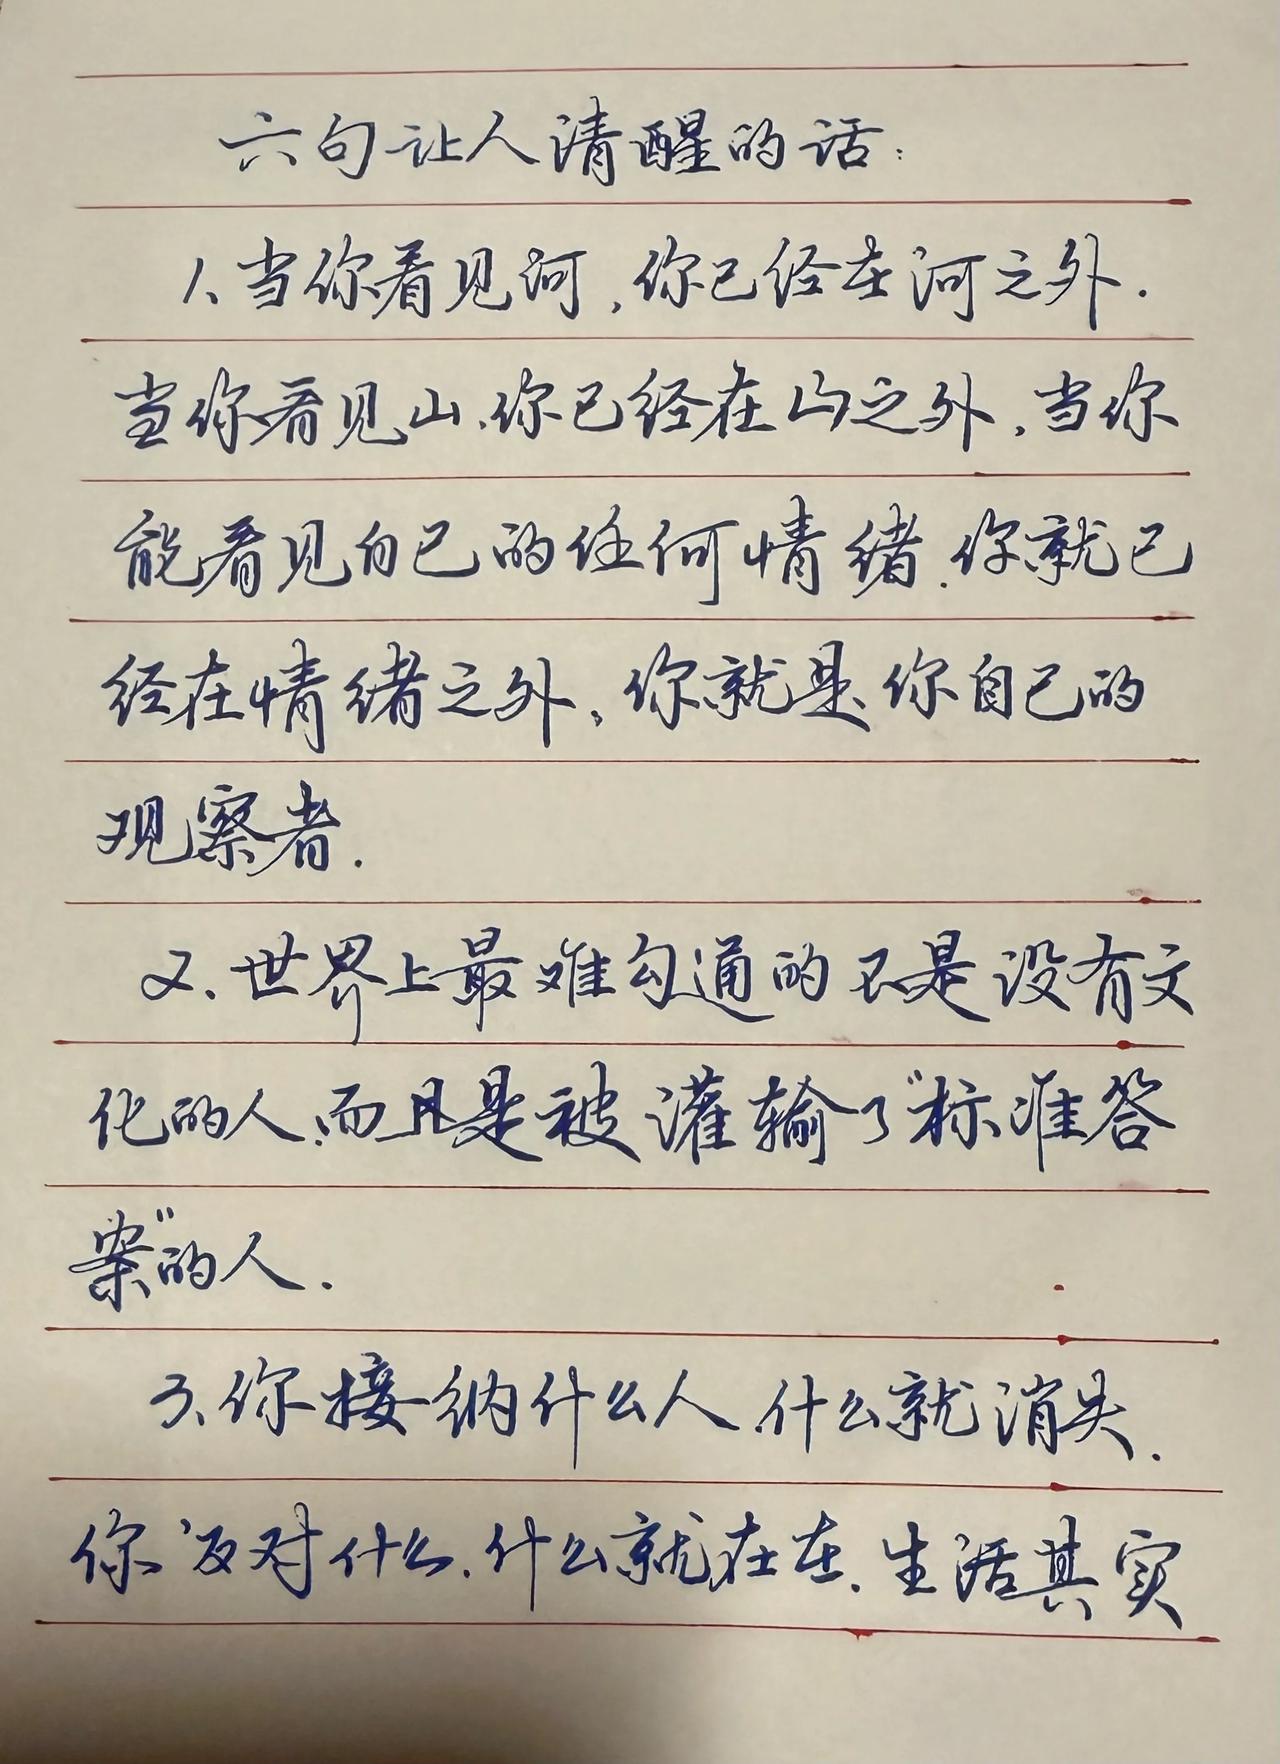 六句让人清醒的话：
1、当你看见河，你已经在河之外.
当你看见山，你已经在山之外，当你
能看见自己的任何情绪.你就已
经在情绪之外，你就是你自己的
观察者.
2、世界上最难勾通的不是没有文
化的人，而且是被灌输了“标准答
案”的人.
3、你接纳什么人，什么就消失.
你反对什么.什么就在在.生活其实